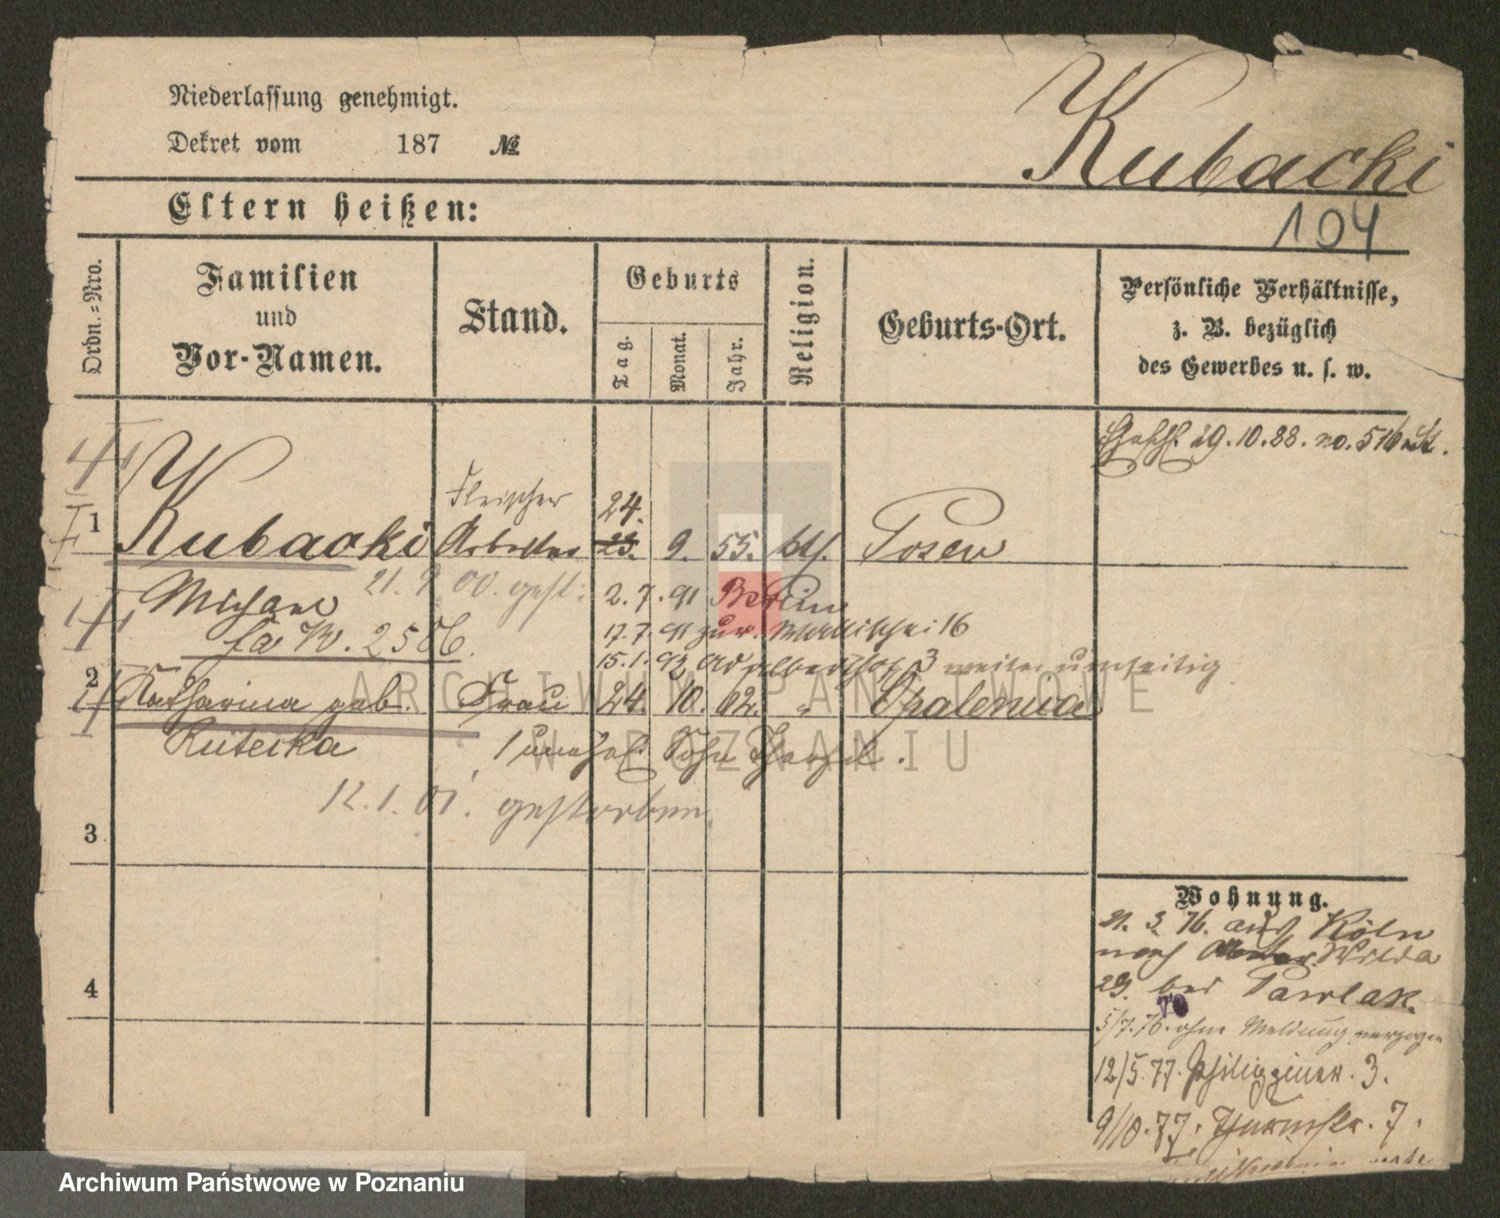 Niederlassung genehmigt.
Dekret vom 187 №
Kubacki
104
Eltern heißen:
Ordn.-Nro.
Familien
und
Vor-Namen.
Stand.
Geburts
Tag.
Monat.
Jahr.
Religion.
Geburts-Ort.
Persönliche Verhältnisse,
z. B. bezüglich
des Gewerbes u. s. w.
29.10.88. no. 516
Fleischer
24.
1 Kubacki Arbeiter 23. 9. 55. kth. Posen
21. 9. 00. gest.
Michael 2. 7. 91 Berlin
17.7.91 zur. Wallischei 16
fa W. 2586.
15.1.92 Adalbertstr 3 weiter umseitig
2 Katharina geb. Frau 24. 10. 62. " Opalenica
Rutecka 1 unehel. Sohn
12. 1. 01. gestorben.
3
4
Wohnung.
21. 3. 76. aus Köln
nach Wilda
29. bei Pawlak.
5/7. 76. ohne Meldung verzogen
12/5. 77. Philippinen. 3.
9/10. 77. Thurmstr. 7.
ARCHIWUM PAŃSTWOWE
W POZNANIU
Archiwum Państwowe w Poznaniu